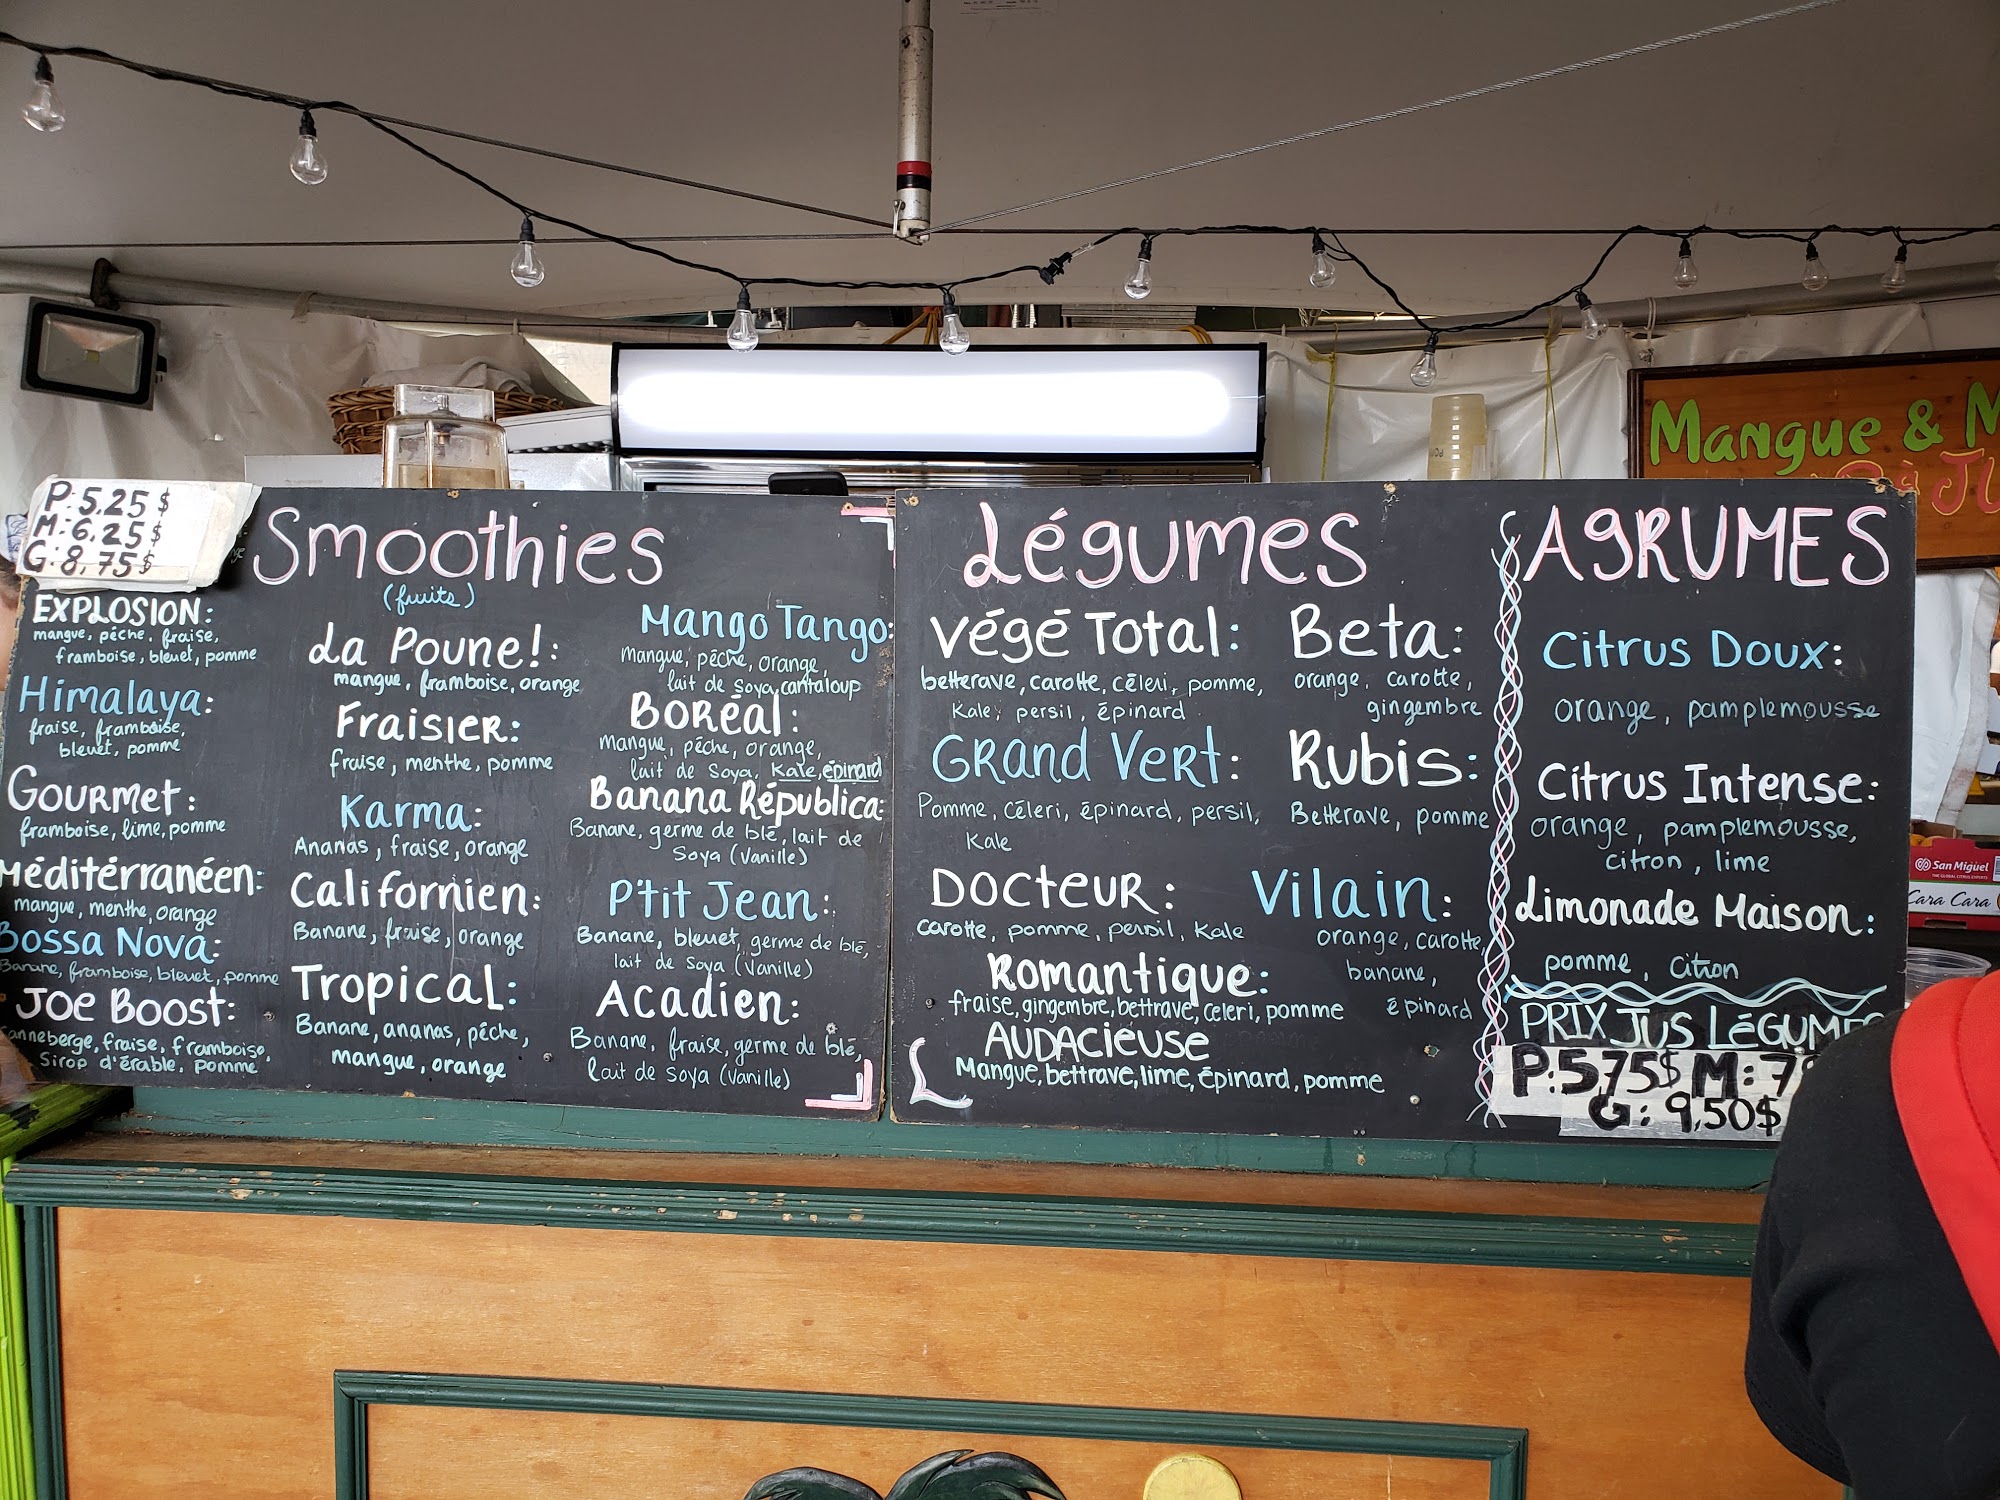 P: 5,25 $
M: 6,25 $
G: 8,75 $
Smoothies
(fruits)
EXPLOSION:
mangue, pêche, fraise,
framboise, bleuet, pomme
Himalaya:
fraise, framboise,
bleuet, pomme
Gourmet:
framboise, lime, pomme
Méditérranéen:
mangue, menthe, orange
Bossa Nova:
Banane, framboise, bleuet, pomme
Joe Boost:
canneberge, fraise, framboise,
Sirop d'érable, pomme
La Poune!:
mangue, framboise, orange
Fraisier:
fraise, menthe, pomme
Karma:
Ananas, fraise, orange
Californien:
Banane, fraise, orange
Tropical:
Banane, ananas, pêche,
mangue, orange
Mango Tango:
mangue, pêche, orange,
lait de soya, cantaloup
Boréal:
mangue, pêche, orange,
lait de soya, Kale, épinard
Banana Républica:
Banane, germe de blé, lait de
Soya (Vanille)
P'tit Jean:
Banane, bleuet, germe de blé,
lait de Soya (Vanille)
Acadien:
Banane, fraise, germe de blé,
lait de soya (Vanille)
Légumes
Végé Total:
betterave, carotte, céleri, pomme,
Kale, persil, épinard
Grand Vert:
Pomme, Céleri, épinard, persil,
Kale
Docteur:
carotte, pomme, persil, Kale
Romantique:
fraise, gingembre, bettrave, celeri, pomme
AUDACIEUSE
Mangue, bettrave, lime, épinard, pomme
Beta:
orange, carotte,
gingembre
Rubis:
Betterave, pomme
Vilain:
orange, carotte,
banane,
épinard
AGRUMES
Citrus Doux:
orange, pamplemousse
Citrus Intense:
orange, pamplemousse,
citron, lime
Limonade Maison:
pomme, citron
PRIX JUS LÉGUMES
P: 5,75$ M: 7
G: 9,50$
Mangue & M
à JU
San Miguel
THE GLOBAL CITRUS EXPERTS
Cara Cara